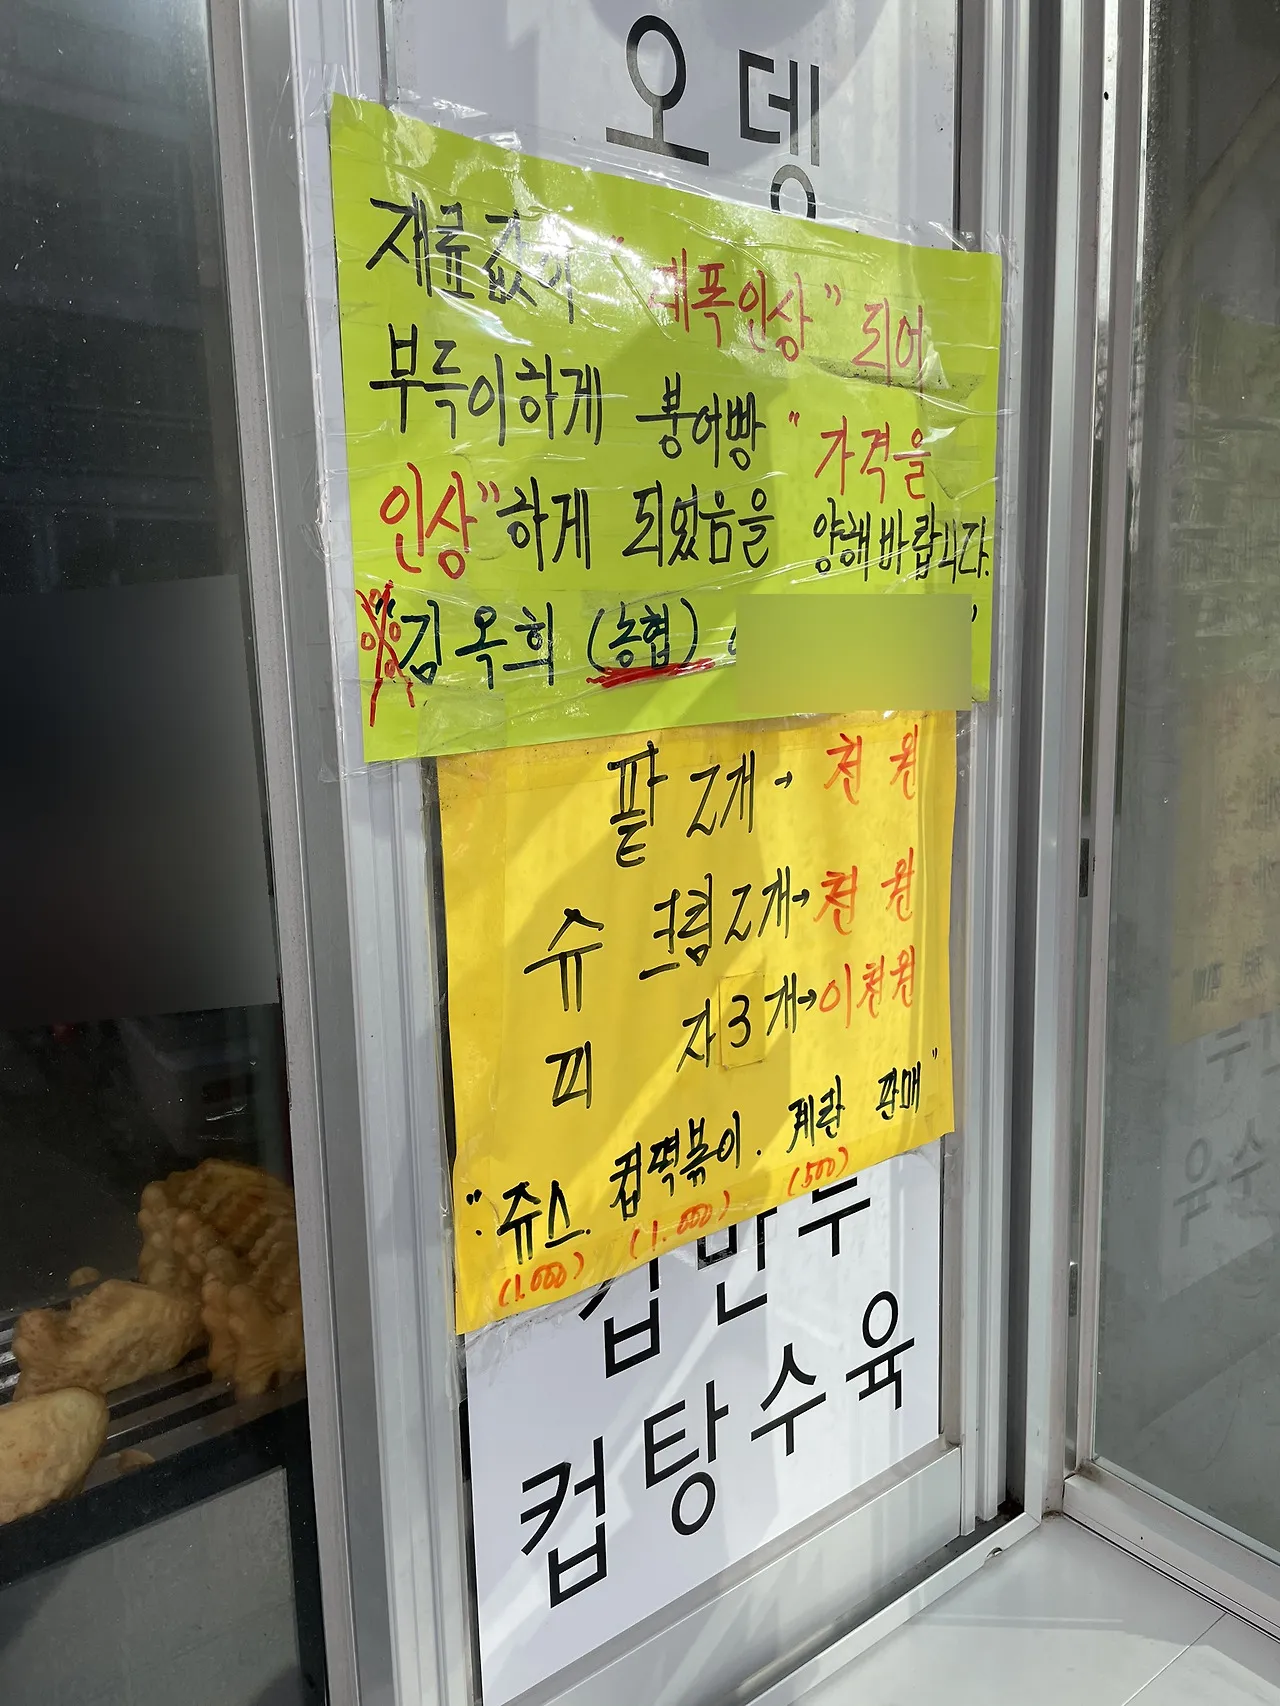 오뎅
재료값이 "대폭인상" 되어
부득이하게 붕어빵 "가격을
인상"하게 되었음을 양해바랍니다.
※김옥희 (농협)
팥 2개→ 천원
슈크림2개→천원
피자3개→이천원
"쥬스. 컵떡볶이. 계란 판매"
(1.000) (1.000) (500)
컵만두
컵탕수육